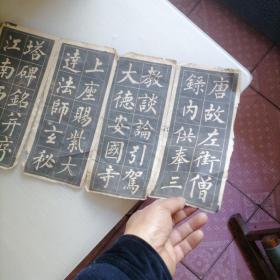 唐故左街僧
錄內供奉三
教談論引駕
大德安國寺
上座賜紫大
達法師玄秘
塔碑銘并序
江南西